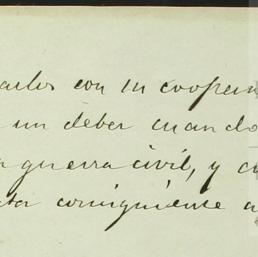 con su cooperac
un deber cuando
guerra civil, y
consiguiente a